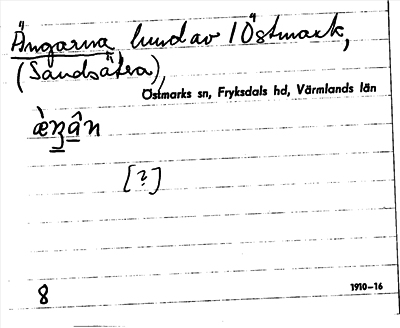 Ängarna lund av 1 Östmark,
(Sandsätra),
Östmarks sn, Fryksdals hd, Värmlands län
[?]
8
1910–16